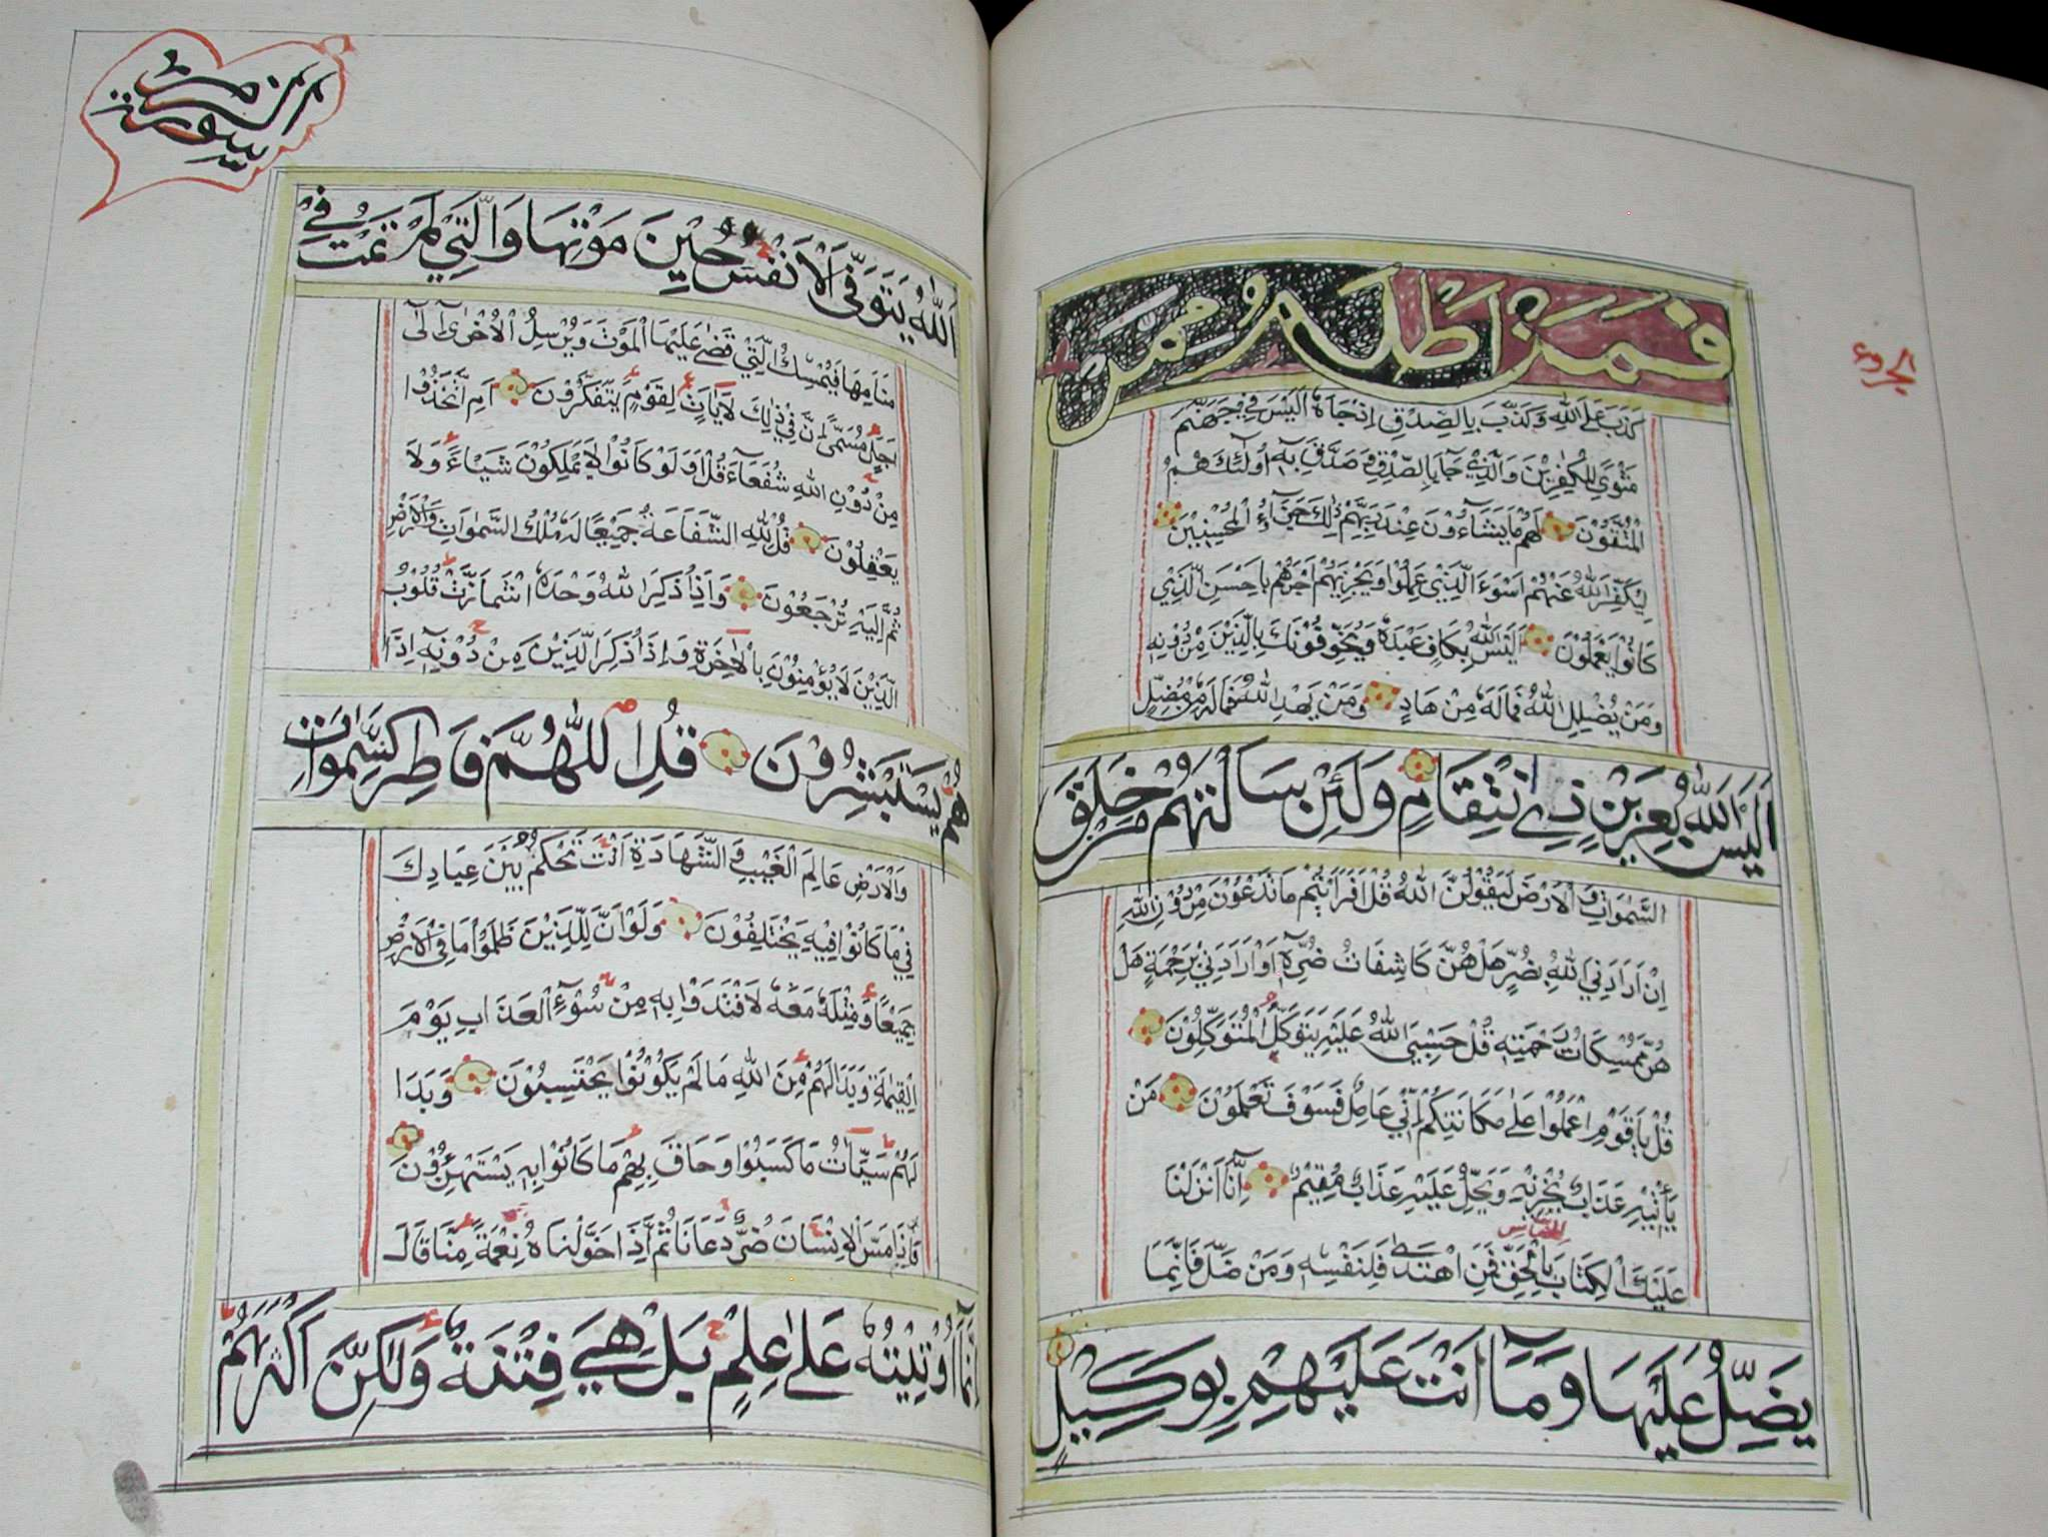 فَمَنْ اَظْلَمُ مِمَّنْ
كَذَبَ عَلَى اللّٰهِ وَكَذَّبَ بِالصِّدْقِ اِذْجَاءَهُ اَلَيْسَ فِيْ جَهَنَّمَ
مَثْوًى لِلْكٰفِرِيْنَ وَالَّذِيْ جَاءَ بِالصِّدْقِ وَصَدَّقَ بِهٖ اُولٰئِكَ هُمُ
الْمُتَّقُوْنَ لَهُمْ مَا يَشَاءُوْنَ عِنْدَ رَبِّهِمْ ذٰلِكَ جَزَاءُ الْمُحْسِنِيْنَ
لِيُكَفِّرَ اللّٰهُ عَنْهُمْ اَسْوَءَ الَّذِيْ عَمِلُوْا وَيَجْزِيَهُمْ اَجْرَهُمْ بِاَحْسَنِ الَّذِيْ
كَانُوْا يَعْمَلُوْنَ اَلَيْسَ اللّٰهُ بِكَافٍ عَبْدَهُ وَيُخَوِّفُوْنَكَ بِالَّذِيْنَ مِنْ دُوْنِهٖ
وَمَنْ يُضْلِلِ اللّٰهُ فَمَالَهُ مِنْ هَادٍ وَمَنْ يَهْدِ اللّٰهُ فَمَالَهُ مِنْ مُضِلٍّ
اَلَيْسَ اللّٰهُ بِعَزِيْزٍ ذِي انْتِقَامٍ وَلَئِنْ سَاَلْتَهُمْ مَنْ خَلَقَ
السَّمٰوَاتِ وَالْاَرْضَ لَيَقُوْلُنَّ اللّٰهُ قُلْ اَفَرَاَيْتُمْ مَا تَدْعُوْنَ مِنْ دُوْنِ اللّٰهِ
اِنْ اَرَادَنِيَ اللّٰهُ بِضُرٍّ هَلْ هُنَّ كَاشِفَاتُ ضُرِّهٖ اَوْ اَرَادَنِيْ بِرَحْمَةٍ هَلْ
هُنَّ مُمْسِكَاتُ رَحْمَتِهٖ قُلْ حَسْبِيَ اللّٰهُ عَلَيْهِ يَتَوَكَّلُ الْمُتَوَكِّلُوْنَ
قُلْ يَا قَوْمِ اعْمَلُوْا عَلٰى مَكَانَتِكُمْ اِنِّيْ عَامِلٌ فَسَوْفَ تَعْلَمُوْنَ مَنْ
يَأْتِيْهِ عَذَابٌ يُخْزِيْهِ وَيَحِلُّ عَلَيْهِ عَذَابٌ مُقِيْمٌ اِنَّا اَنْزَلْنَا
للنّاس
عَلَيْكَ الْكِتَابَ بِالْحَقِّ فَمَنِ اهْتَدٰى فَلِنَفْسِهٖ وَمَنْ ضَلَّ فَاِنَّمَا
يَضِلُّ عَلَيْهَا وَمَا اَنْتَ عَلَيْهِمْ بِوَكِيْلٍ
سورة الزمر
اَللّٰهُ يَتَوَفَّى الْاَنْفُسَ حِيْنَ مَوْتِهَا وَالَّتِيْ لَمْ تَمُتْ فِيْ
مَنَامِهَا فَيُمْسِكُ الَّتِيْ قَضٰى عَلَيْهَا الْمَوْتَ وَيُرْسِلُ الْاُخْرٰى اِلٰى
اَجَلٍ مُسَمًّى اِنَّ فِيْ ذٰلِكَ لَاٰيَاتٍ لِقَوْمٍ يَتَفَكَّرُوْنَ اَمِ اتَّخَذُوْا
مِنْ دُوْنِ اللّٰهِ شُفَعَاءَ قُلْ اَوَلَوْ كَانُوْا لَا يَمْلِكُوْنَ شَيْئًا وَلَا
يَعْقِلُوْنَ قُلْ لِلّٰهِ الشَّفَاعَةُ جَمِيْعًا لَهُ مُلْكُ السَّمٰوَاتِ وَالْاَرْضِ
ثُمَّ اِلَيْهِ تُرْجَعُوْنَ وَاِذَا ذُكِرَ اللّٰهُ وَحْدَهُ اشْمَاَزَّتْ قُلُوْبُ
الَّذِيْنَ لَا يُؤْمِنُوْنَ بِالْاٰخِرَةِ وَاِذَا ذُكِرَ الَّذِيْنَ مِنْ دُوْنِهٖ اِذَا
هُمْ يَسْتَبْشِرُوْنَ قُلِ اللّٰهُمَّ فَاطِرَ السَّمٰوَاتِ
وَالْاَرْضِ عَالِمَ الْغَيْبِ وَالشَّهَادَةِ اَنْتَ تَحْكُمُ بَيْنَ عِبَادِكَ
فِيْ مَا كَانُوْا فِيْهِ يَخْتَلِفُوْنَ وَلَوْ اَنَّ لِلَّذِيْنَ ظَلَمُوْا مَا فِي الْاَرْضِ
جَمِيْعًا وَمِثْلَهُ مَعَهُ لَافْتَدَوْا بِهٖ مِنْ سُوْءِ الْعَذَابِ يَوْمَ
الْقِيٰمَةِ وَبَدَا لَهُمْ مِنَ اللّٰهِ مَا لَمْ يَكُوْنُوْا يَحْتَسِبُوْنَ وَبَدَا
لَهُمْ سَيِّاٰتُ مَا كَسَبُوْا وَحَاقَ بِهِمْ مَا كَانُوْا بِهٖ يَسْتَهْزِئُوْنَ
فَاِذَا مَسَّ الْاِنْسَانَ ضُرٌّ دَعَانَا ثُمَّ اِذَا خَوَّلْنَاهُ نِعْمَةً مِنَّا قَالَ
اِنَّمَا اُوْتِيْتُهُ عَلٰى عِلْمٍ بَلْ هِيَ فِتْنَةٌ وَلٰكِنَّ اَكْثَرَهُمْ